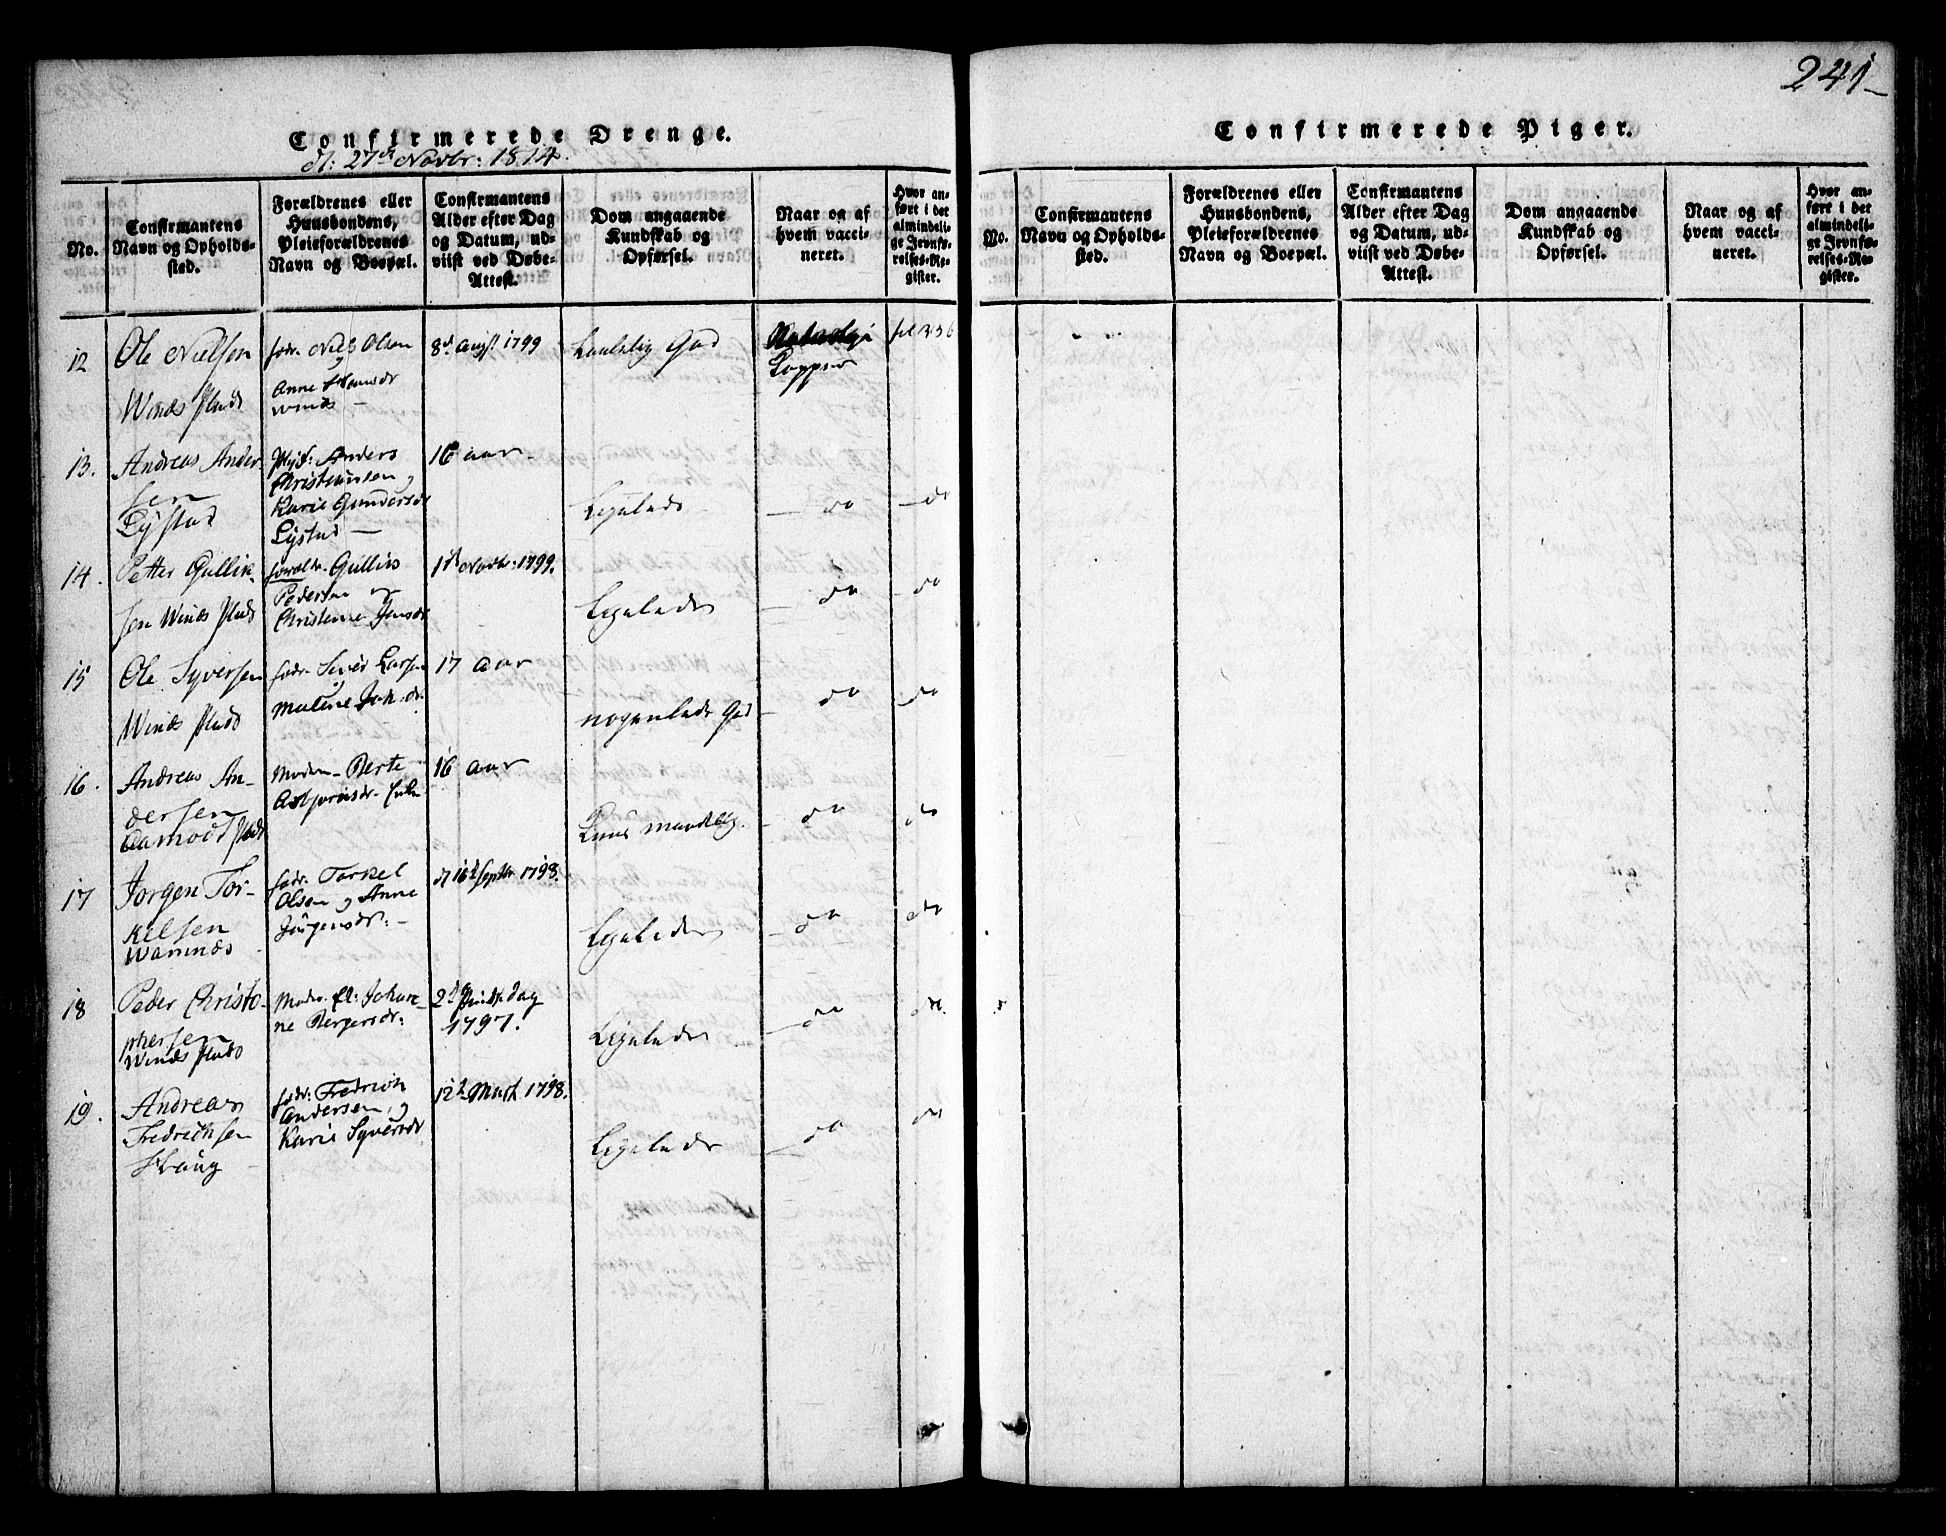 241
Confirmerede Drenge.
d: 27de Novbr: 1814.
No.
Confirmantens
Navn og Opholds-
sted.
Forældrenes eller
Huusbondens,
Pleieforældrenes
Navn og Boepæl.
Confirmantens
Alder efter Dag
og Datum, ud-
viist ved Døbe-
Attest.
Dom angaaende
Kundskab og
Opførsel.
Naar og af
hvem vacci-
neret.
Hvor an-
ført i det
almindeli-
ge Jevnfø-
relses-Re-
gister.
12
Ole Nielsen
Winds Plads
fodr. Niels Olsen
Anne
Winds
8d Augst 1799
God
Kopper
fol 336
13.
Andreas Ander
sen
Lystad
Anders
Christiansen og
Karie Gundersdr
Lystad
16 aar
Ligeledes
do
do
14.
Petter Gullik
sen Winds Plads
forældr. Gulliks
Pedersen og
Christenne Jensdr
1d Novbr: 1799.
Ligeledes
do
do
15
Ole Syversen
Winds Plads
fodr. Siver Larsen
Malene Joh. dr.
17 aar
nogenledes God
do
do
16.
Andreas An-
dersen
Aamodt Plads
Moder Berte
Asbjørnsdr.
16 aar
do
do
17
Jørgen Tor-
kelsen
Wamnæs
fodr. Torkel
Olsen og Anne
Jørgensdr:
d 16d Septbr 1798.
Ligeledes
do
do
18
Peder Christo-
phersen
Winds Plads
Moder. Johan-
ne Bergersdr:
2d Pindsedag
1797.
Ligeledes
do
do
19.
Andreas
Fredrichsen
Houg
fodr: Fredrich
Andersen og
Karie Syversdr
12d Marts 1798.
Ligeledes
do
do
Confirmerede Piger.
No.
Confirmantens
Navn og Opholds-
sted.
Forældrenes eller
Huusbondens,
Pleieforældrenes
Navn og Boepæl.
Confirmantens
Alder efter Dag
og Datum, ud-
viist ved Døbe-
Attest.
Dom angaaende
Kundskab og
Opførsel.
Naar og af
hvem vacci-
neret.
Hvor an-
ført i det
almindeli-
ge Jevnfø-
relses-Re-
gister.